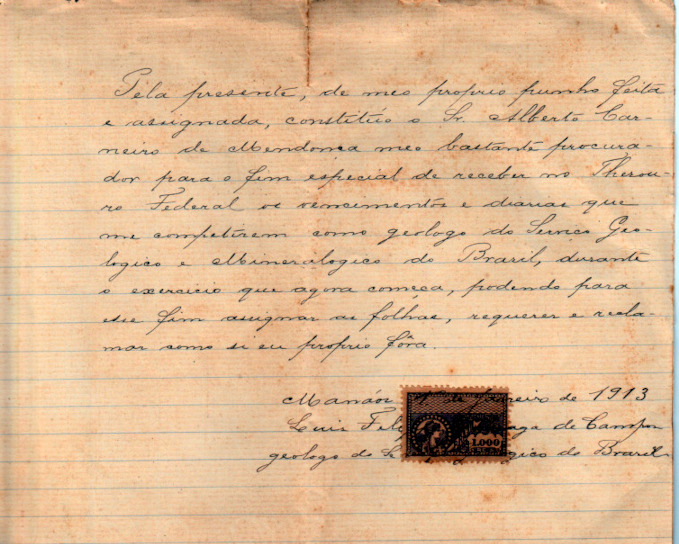 Pela presente, de meo proprio punho feita
e assignada, constitúo o Sr. Alberto Car-
neiro de Mendonça meo bastante procura-
dor para o fim especial de receber no Thesou-
ro Federal os vencimentos e diarias que
me competirem como geologo do Serviço Geo-
logico e Mineralogico do Brazil, durante
o exercicio que agora começa, podendo para
esse fim assignar as folhas, requerer e recla-
mar como si eu proprio fôra.
Manáos 1 de Janeiro de 1913
Luis Felip de Campos
1.000
geologo do gico do Brazil